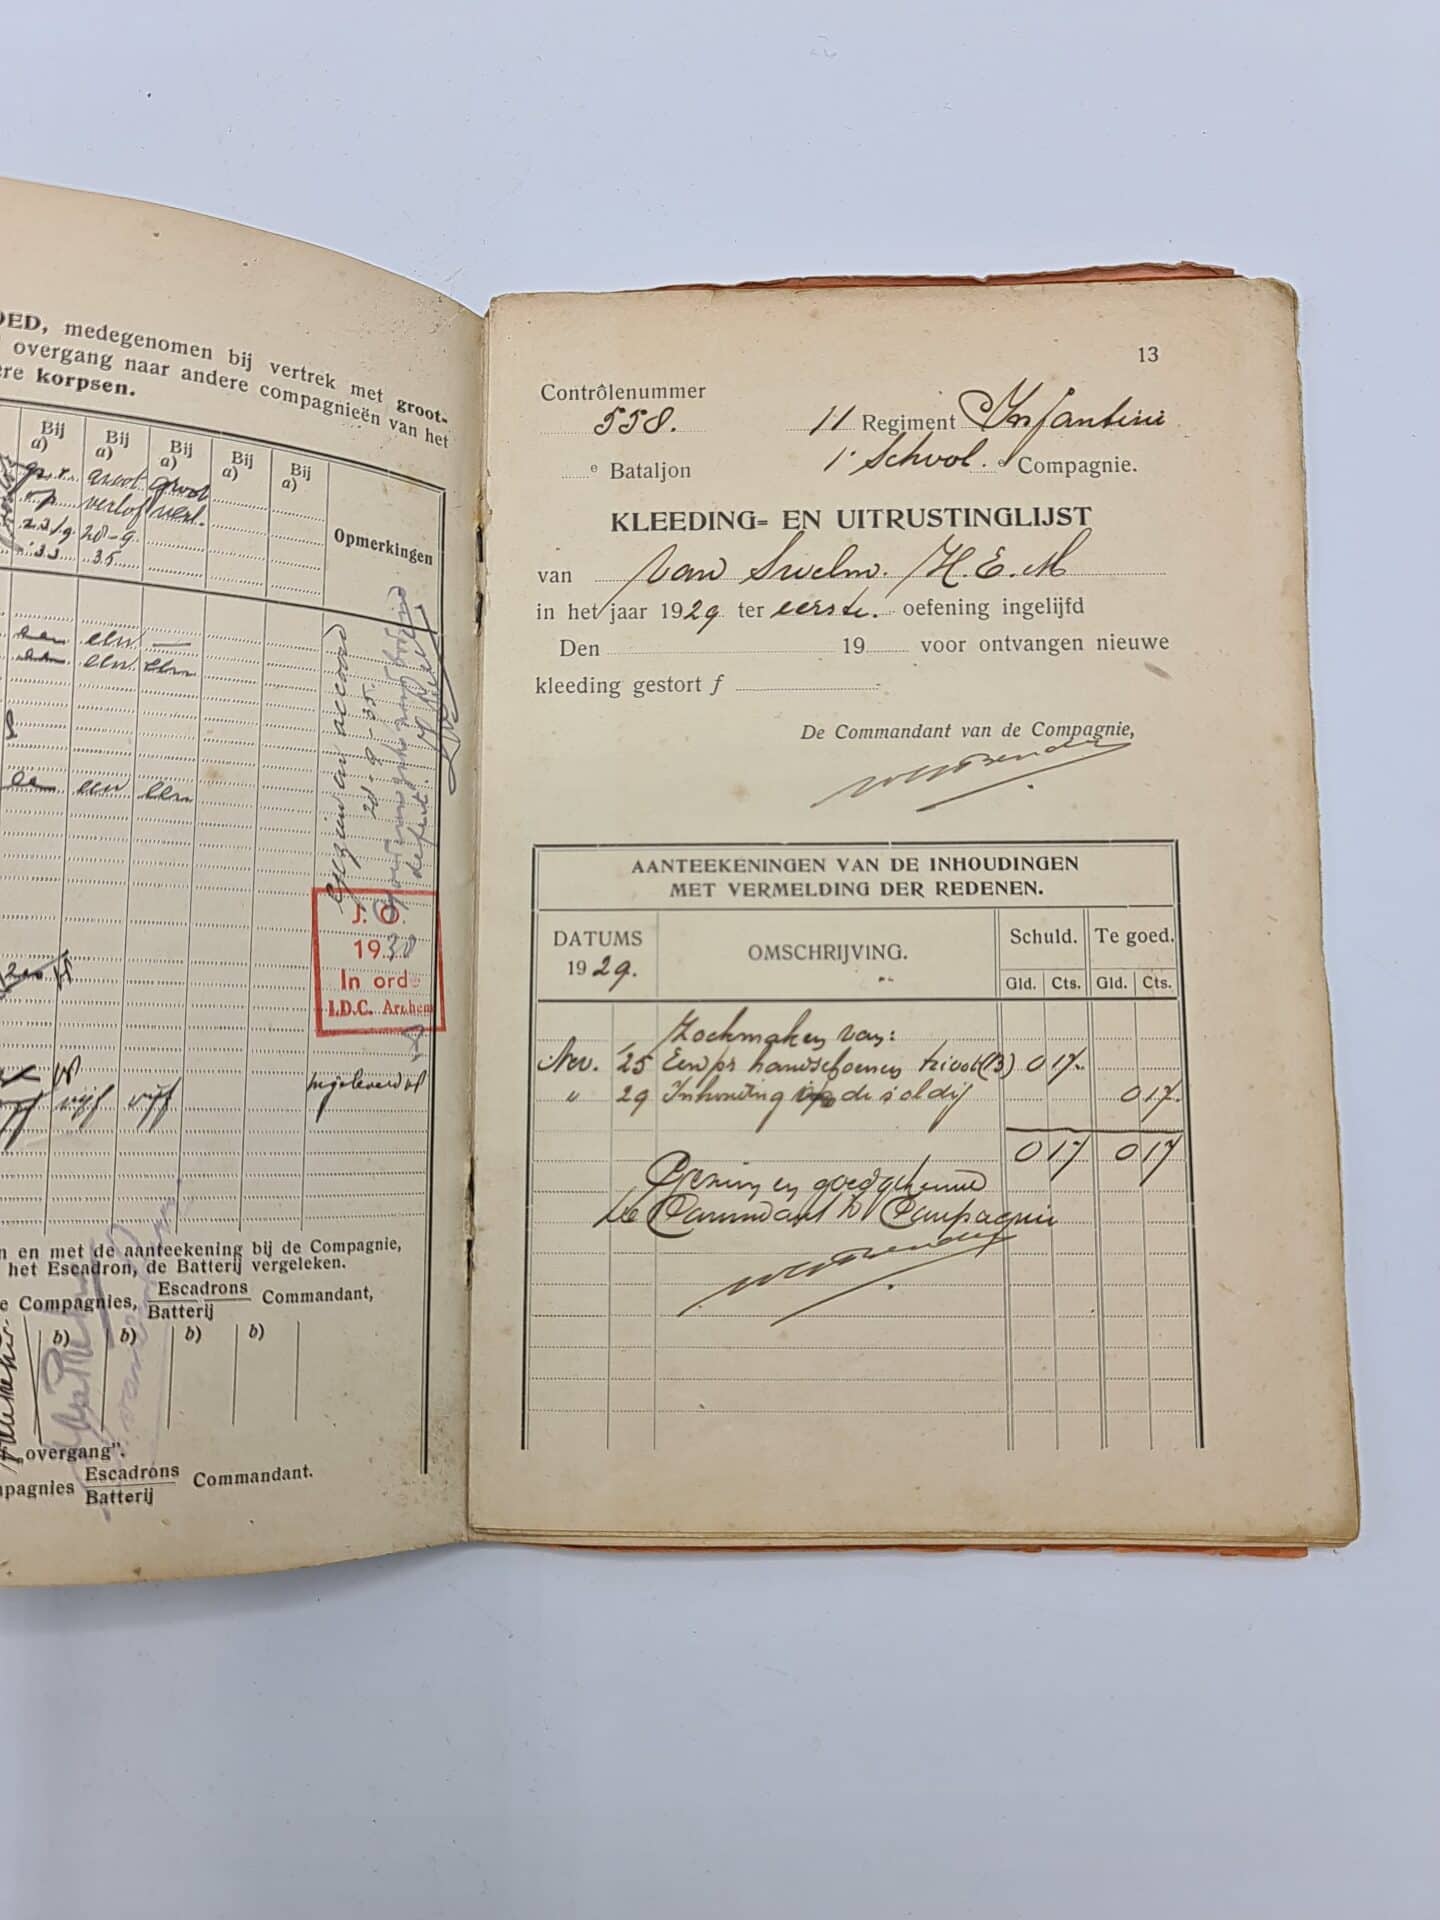 OED, medegenomen bij vertrek met groot-
overgang naar andere compagnieën van het
ere korpsen.
Bij Bij Bij Bij Bij
a) a) a) a) a)
groot groot
verlof verl.
23/9 28-9
33 35
Opmerkingen
een een —
een een een
een een een
28-9-35.
defect.
J. O.
1938
In orde
I.D.C. Arnhem
vijf vijf
ingeleverd
n en met de aanteekening bij de Compagnie,
het Escadron, de Batterij vergeleken.
e Compagnies, Escadrons Commandant,
Batterij
b) b) b) b)
„overgang”.
mpagnies Escadrons Commandant.
Batterij
13
Contrôlenummer
558. 11 Regiment Infanterie
e Bataljon 1e School. e Compagnie.
KLEEDING- EN UITRUSTINGLIJST
van van Swelm. H.E.M
in het jaar 1929 ter eerste. oefening ingelijfd
Den 19 voor ontvangen nieuwe
kleeding gestort f
De Commandant van de Compagnie,
AANTEEKENINGEN VAN DE INHOUDINGEN
MET VERMELDING DER REDENEN.
DATUMS OMSCHRIJVING. Schuld. Te goed.
1929. Gld. Cts. Gld. Cts.
Zoekmaken van:
Nov. 25 Een pr handschoenen tricot (B) 0 17.
" 29 Inhouding op de soldij 0 17.
0 17 0 17
Gezien en goedgekeurd
De Commandant d Compagnie